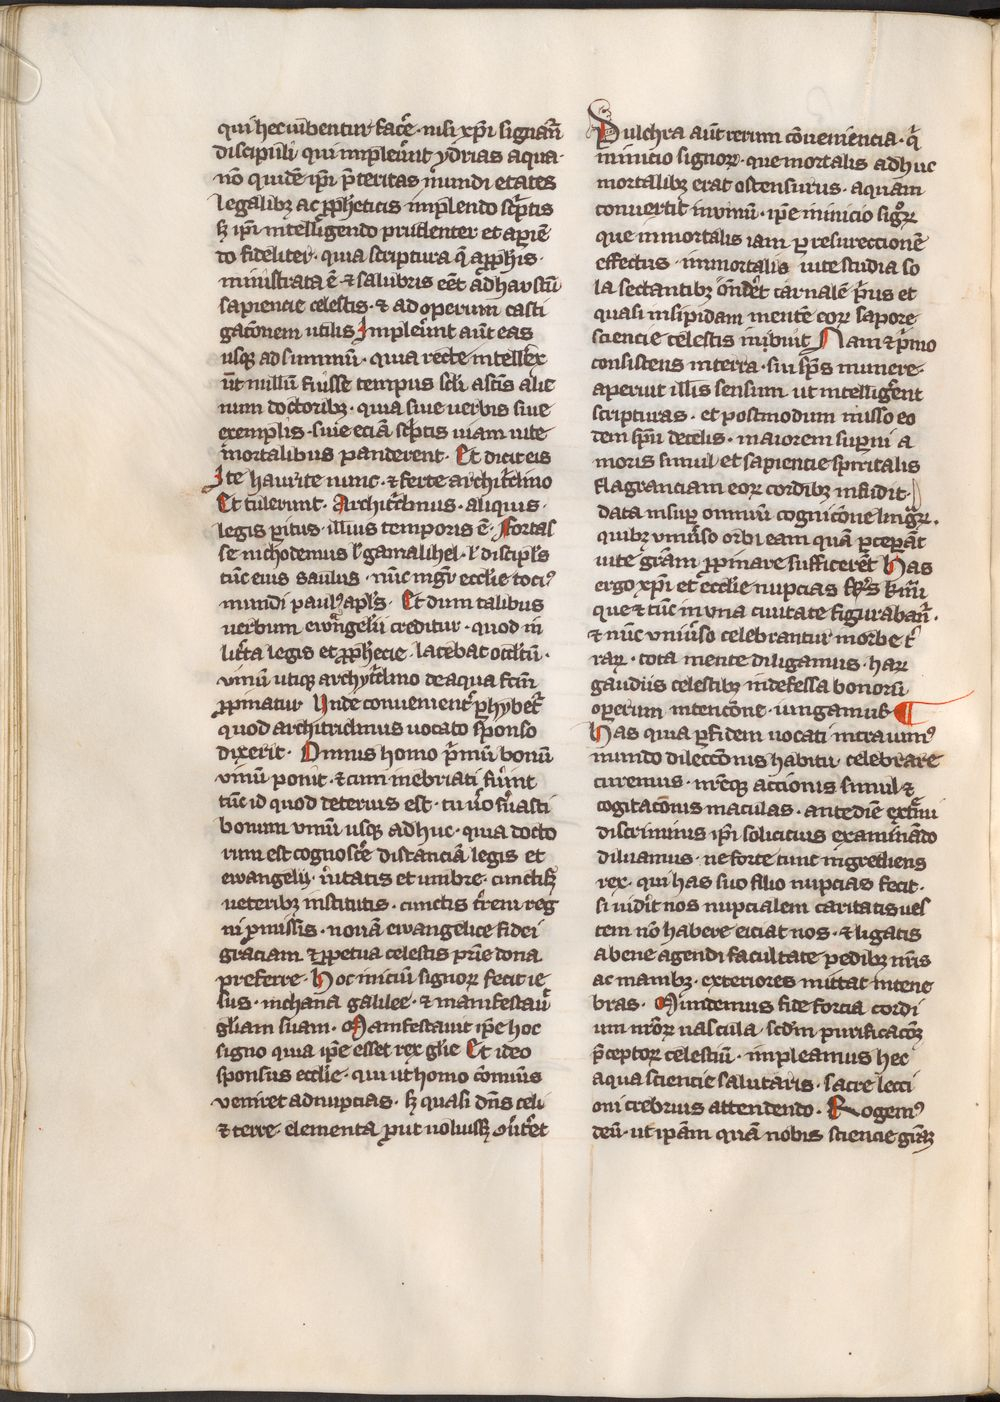 qui hec iubentur fac̄e · nisi xp̄i signant̄
discipuli qui impleu̅t ydrias aqua ·
nō quidē ip̄i p̄teritas mundi etates
legalibꝫ ac ꝓph̄eticis implendo sc̄ptis
sꝫ ip̄i intelligendo prudenter et apiē
do fideliter · quia scriptura q̄ a ꝓphis ·
ministrata ē · ⁊ salubris eēt ad haustū
sapiencie celestis · ⁊ ad operum casti
gacōnem utilis Impleu̅t aūt eas
usqꝫ ad summū · quia recte intellex
ūt nullū fuisse tempus sc̄li a sc̄tis alie
num doctoribꝫ · quia siue uerbis siue
exemplis · siue eciā sc̄ptis uiam uite
mortalibus panderent · Et dicit eis
Ite haurite nunc · ⁊ ferte archit̄clino
Et tulerunt · Archit̄clinus · aliquis ·
legis ꝑitus · illius temporis ē · Fortas
se nichodemus ł gamalihel · ł discipl̄s
tūc eius saulus · nūc mgr̄ ecclie toci⁹
mundi paul⁹ apl̄s · Et dum talibus
uerbum ewangelii creditur · quod in
litt̄a legis et ꝓph̄ecie · latebat occltū ·
vinū utiqꝫ archyt̄clino de aqua fc̄m
ꝓpinatur Unde conuenient̄ ꝑhybet̄
quod architriclinus uocato sponso
dixerit · Omnis homo p̄mū bonū
vinū ponit · ⁊ cum inebriati fu̅int
tūc id quod deterius est · tu u̅o s̄uasti
bonum vinū usqꝫ adhuc · quia docto
rum est cognosc̄e distanciā legis et
ewangelij · u̅itatis et umbre · cunctisqꝫ
ueteribꝫ institutis · cunctis t̄reni reg
ni ꝓmissis · nouā ewangelice fidei
graciam ⁊ ꝑpetua celestis pr̄ie dona
preferre · Hoc iniciū signoꝝ fecit ie
sus · in chana galilee · ⁊ manifestau̅
gl̄iam suam · Manifestauit ip̄e hoc
signo quia ip̄e esset rex gl̄ie Et ideo
sponsus ecclie · qui ut homo cōmūis
veniret ad nupcias · sꝫ quasi dn̄s celi
⁊ terre · elementa ꝓut uoluissꝫ ꝯu̅tet
Pulchra aūt rerum cōueniencia · q̄
in inicio signoꝝ · que mortalis adhuc
mortalibꝫ erat ostensurus · aquam
conuertit in vinū · ip̄e in inicio sigͦꝝ
que inmortalis iam ꝑ resureccionē
effectus · inmortalis uite studia so
la sectantibꝫ ōndēt carnalē p̄us et
quasi insipidam mentē eoꝝ sapore
sciencie celestis inbuit Nam ⁊ p̄mo
consistens in terra · sui sp̄s munere ·
aperuit illis sensum ut intellig̅ent
scripturas · et postmodum misso eo
dem sp̄u de celis · maiorem supni a
moris simul et sapiencie spiritalis
flagranciam eoꝝ cordibꝫ infudit ·
data insuꝑ omnium cognicōne lingᵃꝝ ·
quibꝫ vniu̅so orbi eam quā ꝑcepāt
uite gr̄am ꝓpinare sufficerēt Has
ergo xp̄i et ecclie nupcias
que ⁊ tūc in vna ciuitate figurabanᷣ ·
⁊ nūc vniu̅so celebrantur in orbe t̄
raꝝ · tota mente diligamus · haꝝ
gaudiis celestibꝫ indefessa bonorū
operum intencōne · iungamus ¶
Has quia ꝑ fidem uocati intrauim⁹
mundo dileccōnis habitu · celebrare
curemus · nr̄eqꝫ accionis simul ⁊
cogitacōnis maculas · ante diē extᵉmi
discriminis ip̄i solicicius examinādo
diluamus · ne forte tunc ingrediens
rex · qui has suo filio nupcias fecit ·
si uidīt nos nupcialem caritatis ues
tem nō habere eiciat nos · ⁊ ligatis
a bene agendi facultate pedibꝫ nr̄is
ac manibꝫ · exteriores mittat in tene
bras · Mundemus fide forcia cordi
um nr̄oꝝ uascula · scdm̄ purificacōꝫ
p̄ceptoꝝ celestiū · impleamus hec
aqua sciencie salutaris · sacre lecci
oni crebrius attendendo · Rogem⁹
deū · ut ip̄am quā nobis sciencie gr̄aꝫ